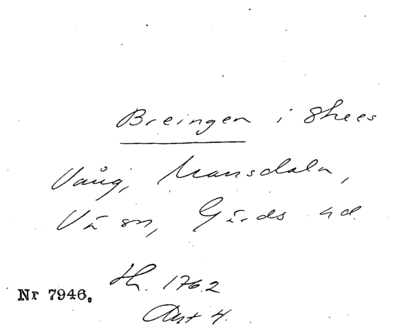 Breingen i Skees
Vång, Mansdala,
Vä sn, Gärds hd.
Nr 7946.
H. 1762
Akt 4.